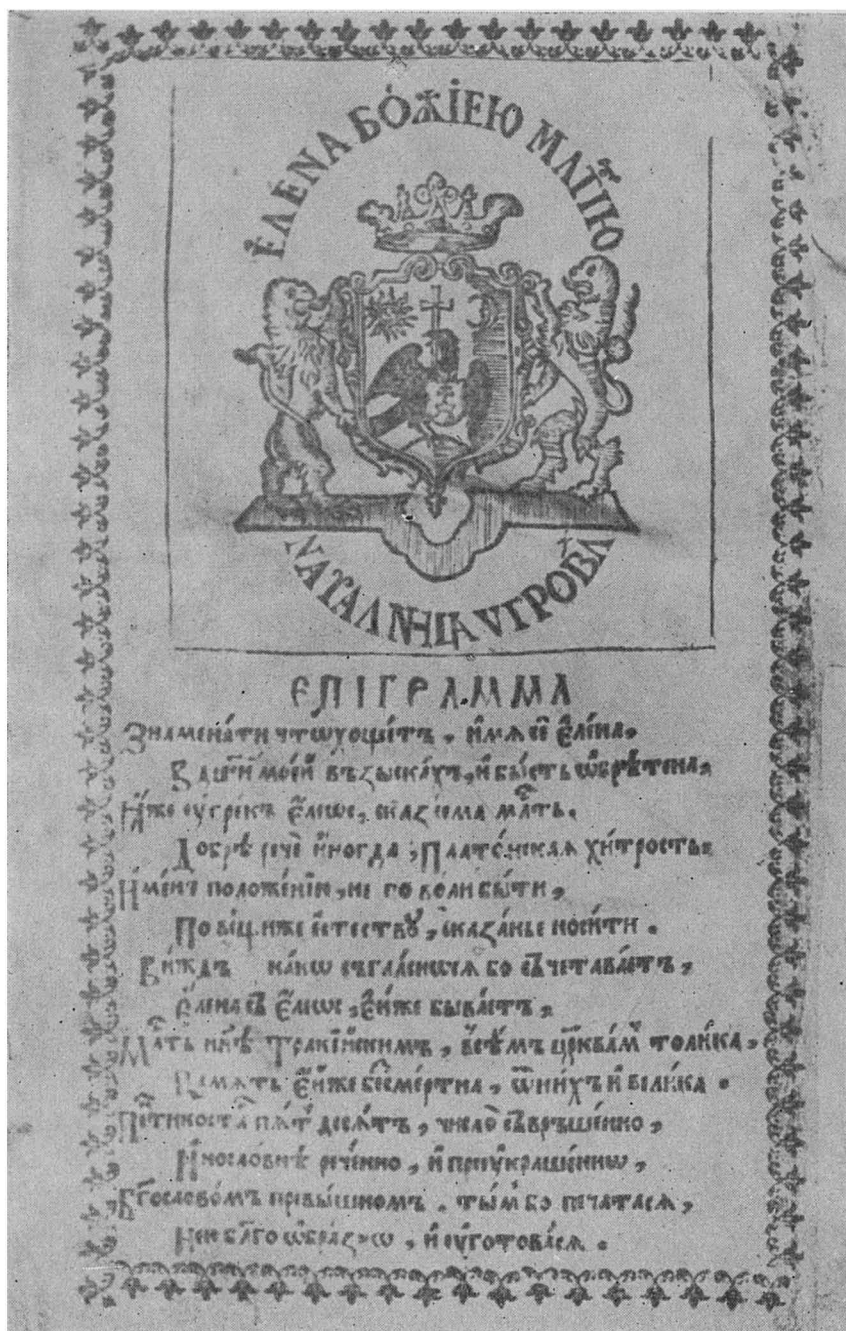 ЕЛЕ́НА БО́ЖІЕЮ МЛ҃ТІЮ
НАТАЛНИЦА УГРОВЛ
ЕПІГРАММА
Знамена́ти что̀ хощитъ, и҆́мѧ еѝ Е҆ле́на,
В дш҃и мое́й възыска́хъ, и҆ бы́сть ѡ҆брѣ́тена,
Е҆́леѡс, ма́ть.
До́брѣ речѐ и҆ногда̀, Плато́нскаѧ хи́трость
И҆ме́нъ положе́нїи, не го воли бы́ти,
По ве́щи же е҆стествꙋ̀, сказа́нье носи́ти.
Ви́ждъ ка́кѡ съгла́снѡсѧ бо съчетава́етъ,
Е҆ле́на съ Е҆́леѡс, быва́етъ,
Мл҃ть нн҃ѣ Тракі́йскимъ, всѣ́мъ црк҃ва́мъ толи́ка,
Па́мѧть є҆́йже безсме́ртна, ѿ ни́хъ и҆ вели́ка.
пѧ́ть десѧ́тъ, число̀ съврьше́нно,
И҆носло́внѣ рече́нно, и҆ преꙋкраше́ннѡ,
Бг҃осло́вомъ превы́шномъ. ты́м бо печа́тасѧ,
бл҃гоѡбра́знѡ, и҆ ᲂуготова́сѧ.